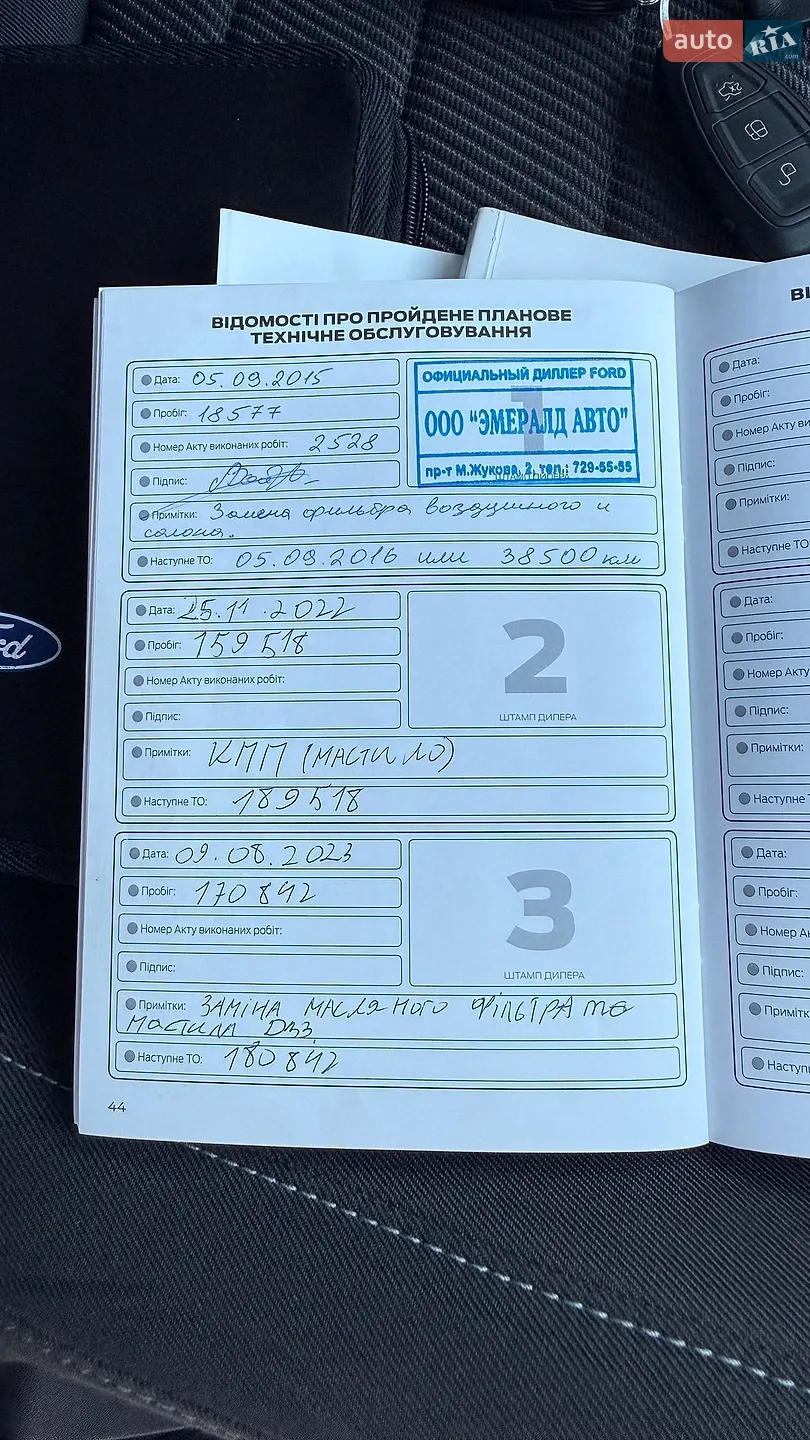 auto RIA
.com
ВІДОМОСТІ ПРО ПРОЙДЕНЕ ПЛАНОВЕ
ТЕХНІЧНЕ ОБСЛУГОВУВАННЯ
Дата: 05.09.2015
Пробіг: 18577
Номер Акту виконаних робіт: 2528
Підпис:
ОФИЦИАЛЬНЫЙ ДИЛЛЕР FORD
1
ООО "ЭМЕРАЛД АВТО"
пр-т М.Жукова, 2, тел.: 729-55-55
Примітки: Замена фильтра воздушного и
салона.
Наступне ТО: 05.09.2016 или 38500 км
Дата: 25.11.2022
Пробіг: 159 518
Номер Акту виконаних робіт:
Підпис:
2
ШТАМП ДИЛЕРА
Примітки: КПП (МАСТИЛО)
Наступне ТО: 189518
Дата: 09.08.2023
Пробіг: 170 842
Номер Акту виконаних робіт:
Підпис:
3
ШТАМП ДИЛЕРА
Примітки: ЗАМІНА МАСЛЯНОГО ФІЛЬТРА та
мастила ДВЗ
Наступне ТО: 180 842
44
ВІ
Дата:
Пробіг:
Номер Акту ви
Підпис:
Примітки:
Наступне ТО
Дата:
Пробіг:
Номер Акту
Підпис:
Примітки:
Наступне
Дата:
Пробіг:
Номер А
Підпис:
Примітк
Наступн